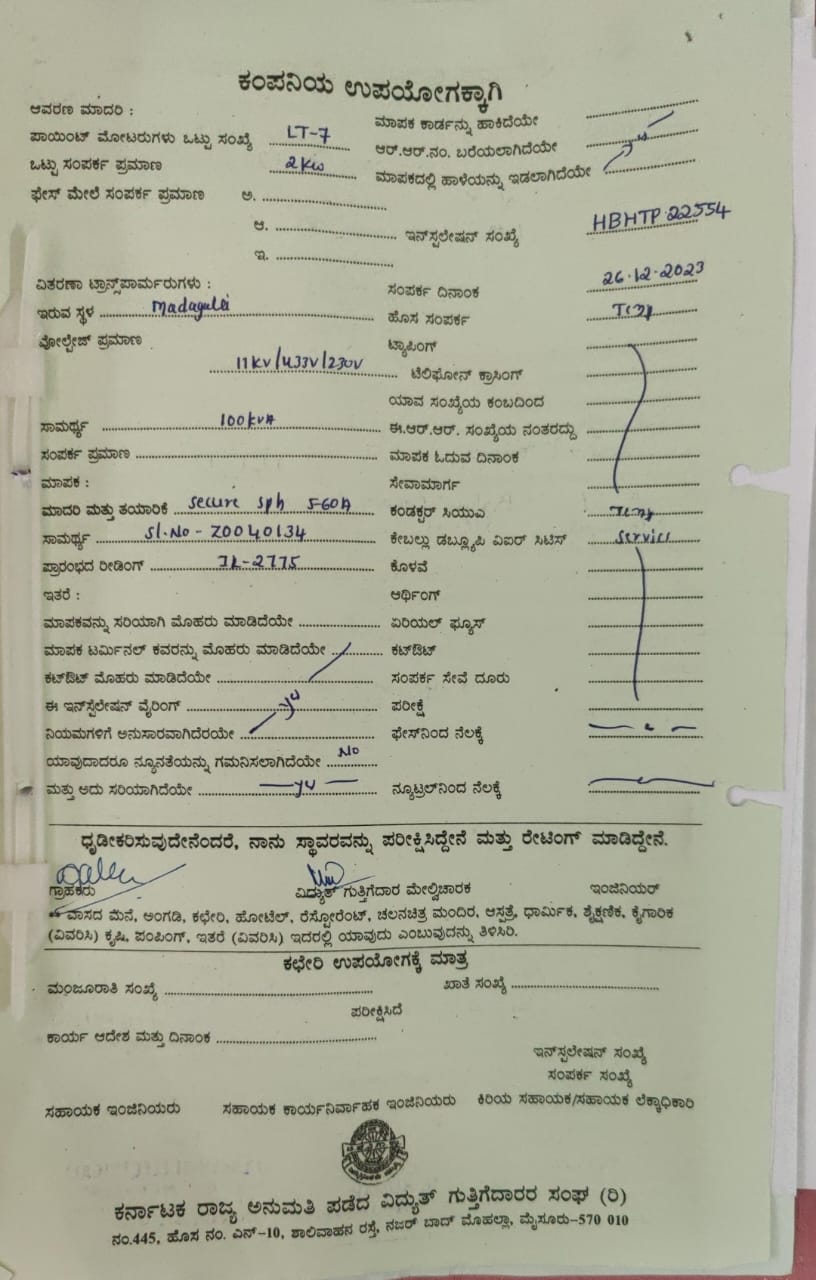 ಕಂಪನಿಯ ಉಪಯೋಗಕ್ಕಾಗಿ
ಆವರಣ ಮಾದರಿ :
ಮಾಪಕ ಕಾರ್ಡನ್ನು ಹಾಕಿದೆಯೇ
ಪಾಯಿಂಟ್ ಮೋಟರುಗಳು ಒಟ್ಟು ಸಂಖ್ಯೆ LT-7
ಆರ್.ಆರ್.ನಂ. ಬರೆಯಲಾಗಿದೆಯೇ
ಒಟ್ಟು ಸಂಪರ್ಕ ಪ್ರಮಾಣ 2Kw
ಮಾಪಕದಲ್ಲಿ ಹಾಳೆಯನ್ನು ಇಡಲಾಗಿದೆಯೇ
ಫೇಸ್ ಮೇಲೆ ಸಂಪರ್ಕ ಪ್ರಮಾಣ ಅ.
ಆ.
ಇನ್‌ಸ್ಟಲೇಷನ್ ಸಂಖ್ಯೆ HBHTP 22554
ಇ.
ವಿತರಣಾ ಟ್ರಾನ್ಸ್‌ಪಾರ್ಮರುಗಳು :
ಸಂಪರ್ಕ ದಿನಾಂಕ 26.12.2023
ಇರುವ ಸ್ಥಳ
ಹೊಸ ಸಂಪರ್ಕ Temp
ವೋಲ್ಟೇಜ್ ಪ್ರಮಾಣ
ಟ್ಯಾಪಿಂಗ್
11KV/433V/230V
ಟೆಲಿಫೋನ್ ಕ್ರಾಸಿಂಗ್
ಯಾವ ಸಂಖ್ಯೆಯ ಕಂಬದಿಂದ
ಸಾಮರ್ಥ್ಯ 100kVA
ಈ.ಆರ್.ಆರ್. ಸಂಖ್ಯೆಯ ನಂತರದ್ದು
ಸಂಪರ್ಕ ಪ್ರಮಾಣ
ಮಾಪಕ ಓದುವ ದಿನಾಂಕ
ಮಾಪಕ :
ಸೇವಾಮಾರ್ಗ
ಮಾದರಿ ಮತ್ತು ತಯಾರಿಕೆ Secure Sph 5-60A
ಕಂಡಕ್ಟರ್ ಸಿಯುಎ Temp
ಸಾಮರ್ಥ್ಯ Sl.No - Z0040134
ಕೇಬಲ್ಲು ಡಬ್ಲ್ಯೂಪಿ ವಿಐರ್ ಸಿಟಿಸ್ Service
ಪ್ರಾರಂಭದ ರೀಡಿಂಗ್ IR-2775
ಕೊಳವೆ
ಇತರೆ :
ಆರ್ಥಿಂಗ್
ಮಾಪಕವನ್ನು ಸರಿಯಾಗಿ ಮೊಹರು ಮಾಡಿದೆಯೇ
ಏರಿಯಲ್ ಫ್ಯೂಸ್
ಮಾಪಕ ಟರ್ಮಿನಲ್ ಕವರನ್ನು ಮೊಹರು ಮಾಡಿದೆಯೇ
ಕಟ್‌ಔಟ್
ಕಟ್‌ಔಟ್ ಮೊಹರು ಮಾಡಿದೆಯೇ
ಸಂಪರ್ಕ ಸೇವೆ ದೂರು
ಈ ಇನ್‌ಸ್ಟಲೇಷನ್ ವೈರಿಂಗ್
ಪರೀಕ್ಷೆ
ನಿಯಮಗಳಿಗೆ ಅನುಸಾರವಾಗಿದೆರಯೇ
ಫೇಸ್‌ನಿಂದ ನೆಲಕ್ಕೆ
ಯಾವುದಾದರೂ ನ್ಯೂನತೆಯನ್ನು ಗಮನಿಸಲಾಗಿದೆಯೇ No
ಮತ್ತು ಅದು ಸರಿಯಾಗಿದೆಯೇ
ನ್ಯೂಟ್ರಲ್‌ನಿಂದ ನೆಲಕ್ಕೆ
ಧೃಡೀಕರಿಸುವುದೇನೆಂದರೆ, ನಾನು ಸ್ಥಾವರವನ್ನು ಪರೀಕ್ಷಿಸಿದ್ದೇನೆ ಮತ್ತು ರೇಟಿಂಗ್ ಮಾಡಿದ್ದೇನೆ.
ಗ್ರಾಹಕರು ವಿದ್ಯುತ್ ಗುತ್ತಿಗೆದಾರ ಮೇಲ್ವಿಚಾರಕ ಇಂಜಿನಿಯರ್
ವಾಸದ ಮನೆ, ಅಂಗಡಿ, ಕಛೇರಿ, ಹೋಟೆಲ್, ರೆಸ್ಟೋರೆಂಟ್, ಚಲನಚಿತ್ರ ಮಂದಿರ, ಆಸ್ಪತ್ರೆ, ಧಾರ್ಮಿಕ, ಶೈಕ್ಷಣಿಕ, ಕೈಗಾರಿಕ
(ವಿವರಿಸಿ) ಕೃಷಿ, ಪಂಪಿಂಗ್, ಇತರೆ (ವಿವರಿಸಿ) ಇದರಲ್ಲಿ ಯಾವುದು ಎಂಬುವುದನ್ನು ತಿಳಿಸಿರಿ.
ಕಛೇರಿ ಉಪಯೋಗಕ್ಕೆ ಮಾತ್ರ
ಮಂಜೂರಾತಿ ಸಂಖ್ಯೆ ಖಾತೆ ಸಂಖ್ಯೆ
ಪರೀಕ್ಷಿಸಿದೆ
ಕಾರ್ಯ ಆದೇಶ ಮತ್ತು ದಿನಾಂಕ
ಇನ್‌ಸ್ಟಲೇಷನ್ ಸಂಖ್ಯೆ
ಸಂಪರ್ಕ ಸಂಖ್ಯೆ
ಸಹಾಯಕ ಇಂಜಿನಿಯರು ಸಹಾಯಕ ಕಾರ್ಯನಿರ್ವಾಹಕ ಇಂಜಿನಿಯರು ಕಿರಿಯ ಸಹಾಯಕ/ಸಹಾಯಕ ಲೆಕ್ಕಾಧಿಕಾರಿ
ಕರ್ನಾಟಕ ರಾಜ್ಯ ಅನುಮತಿ ಪಡೆದ ವಿದ್ಯುತ್ ಗುತ್ತಿಗೆದಾರರ ಸಂಘ (ರಿ)
ನಂ.445, ಹೊಸ ನಂ. ಎನ್-10, ಶಾಲಿವಾಹನ ರಸ್ತೆ, ನಜರ್ ಬಾದ್ ಮೊಹಲ್ಲಾ, ಮೈಸೂರು-570 010